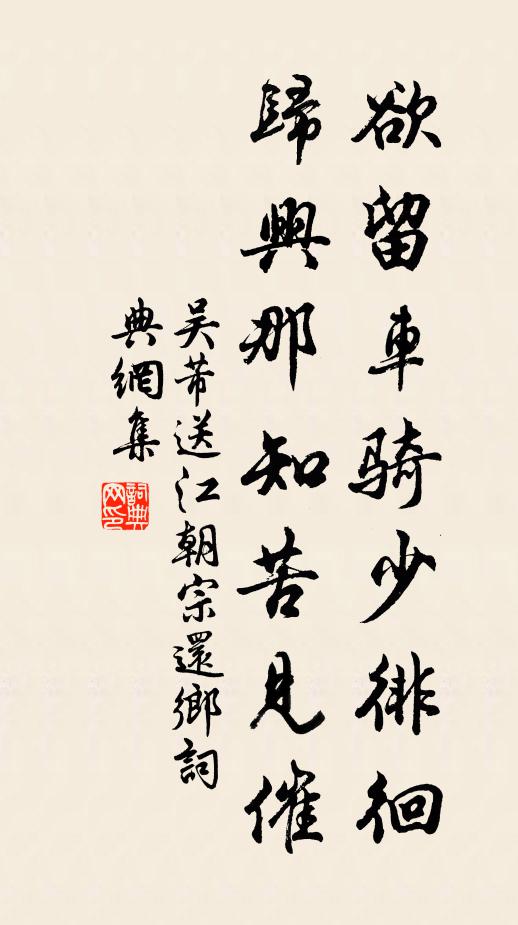 欲留車騎少徘徊
歸興那知苦見催
吴芾送江朝宗還鄉詞
典網集
詞典网印